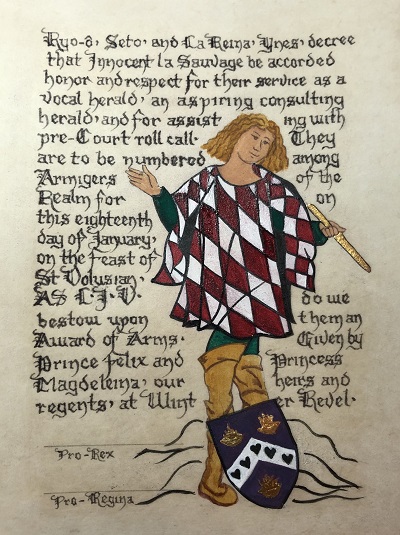 Ryo-ō, Seto, and La Reina, Ynes, decree
that Innocent la Sauvage be accorded
honor and respect for their service as a
vocal herald, an aspiring consulting
herald, and for assisting with
pre-Court roll call. They
are to be numbered among
Armigers of the
Realm for on
this eighteenth
day of January,
on the feast of
St Volusian,
AS L.I.V. do we
bestow upon them an
Award of Arms. Given by
Prince Felix and Princess
Magdelena, our heirs and
regents, at Winter Revel.
Pro-Rex
Pro-Regina